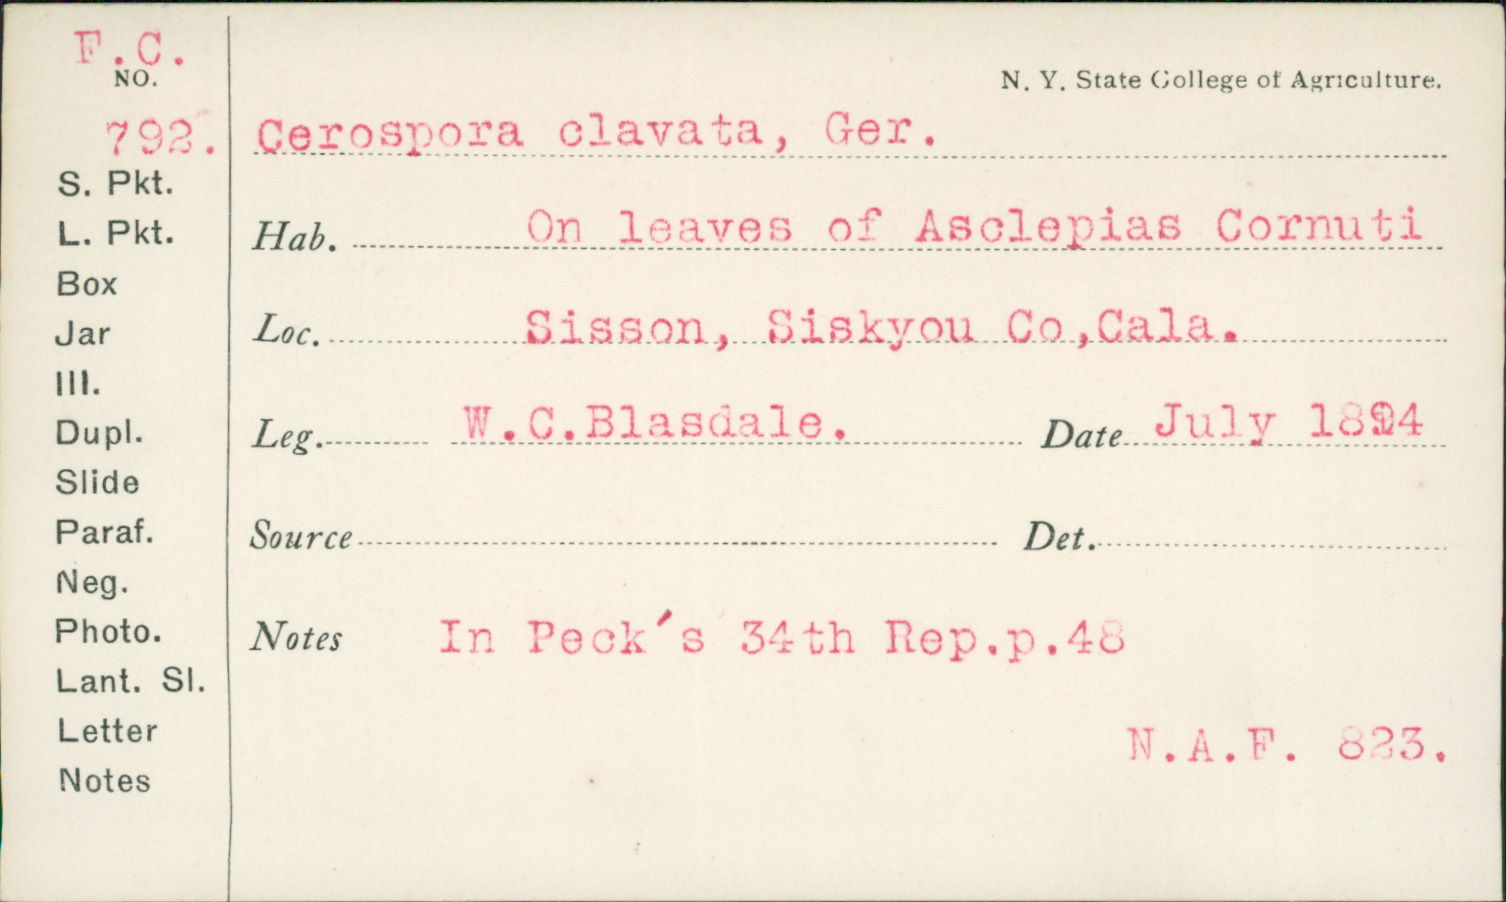 F.C.
NO.
792.
S. Pkt.
L. Pkt.
Box
Jar
Ill.
Dupl.
Slide
Paraf.
Neg.
Photo.
Lant. Sl.
Letter
Notes
N. Y. State College of Agriculture.
Cerospora clavata, Ger.
Hab. On leaves of Asclepias Cornuti
Loc. Sisson, Siskyou Co,Cala.
Leg. W.C.Blasdale. Date July 1894
Source Det.
Notes In Peck's 34th Rep.p.48
N.A.F. 823.